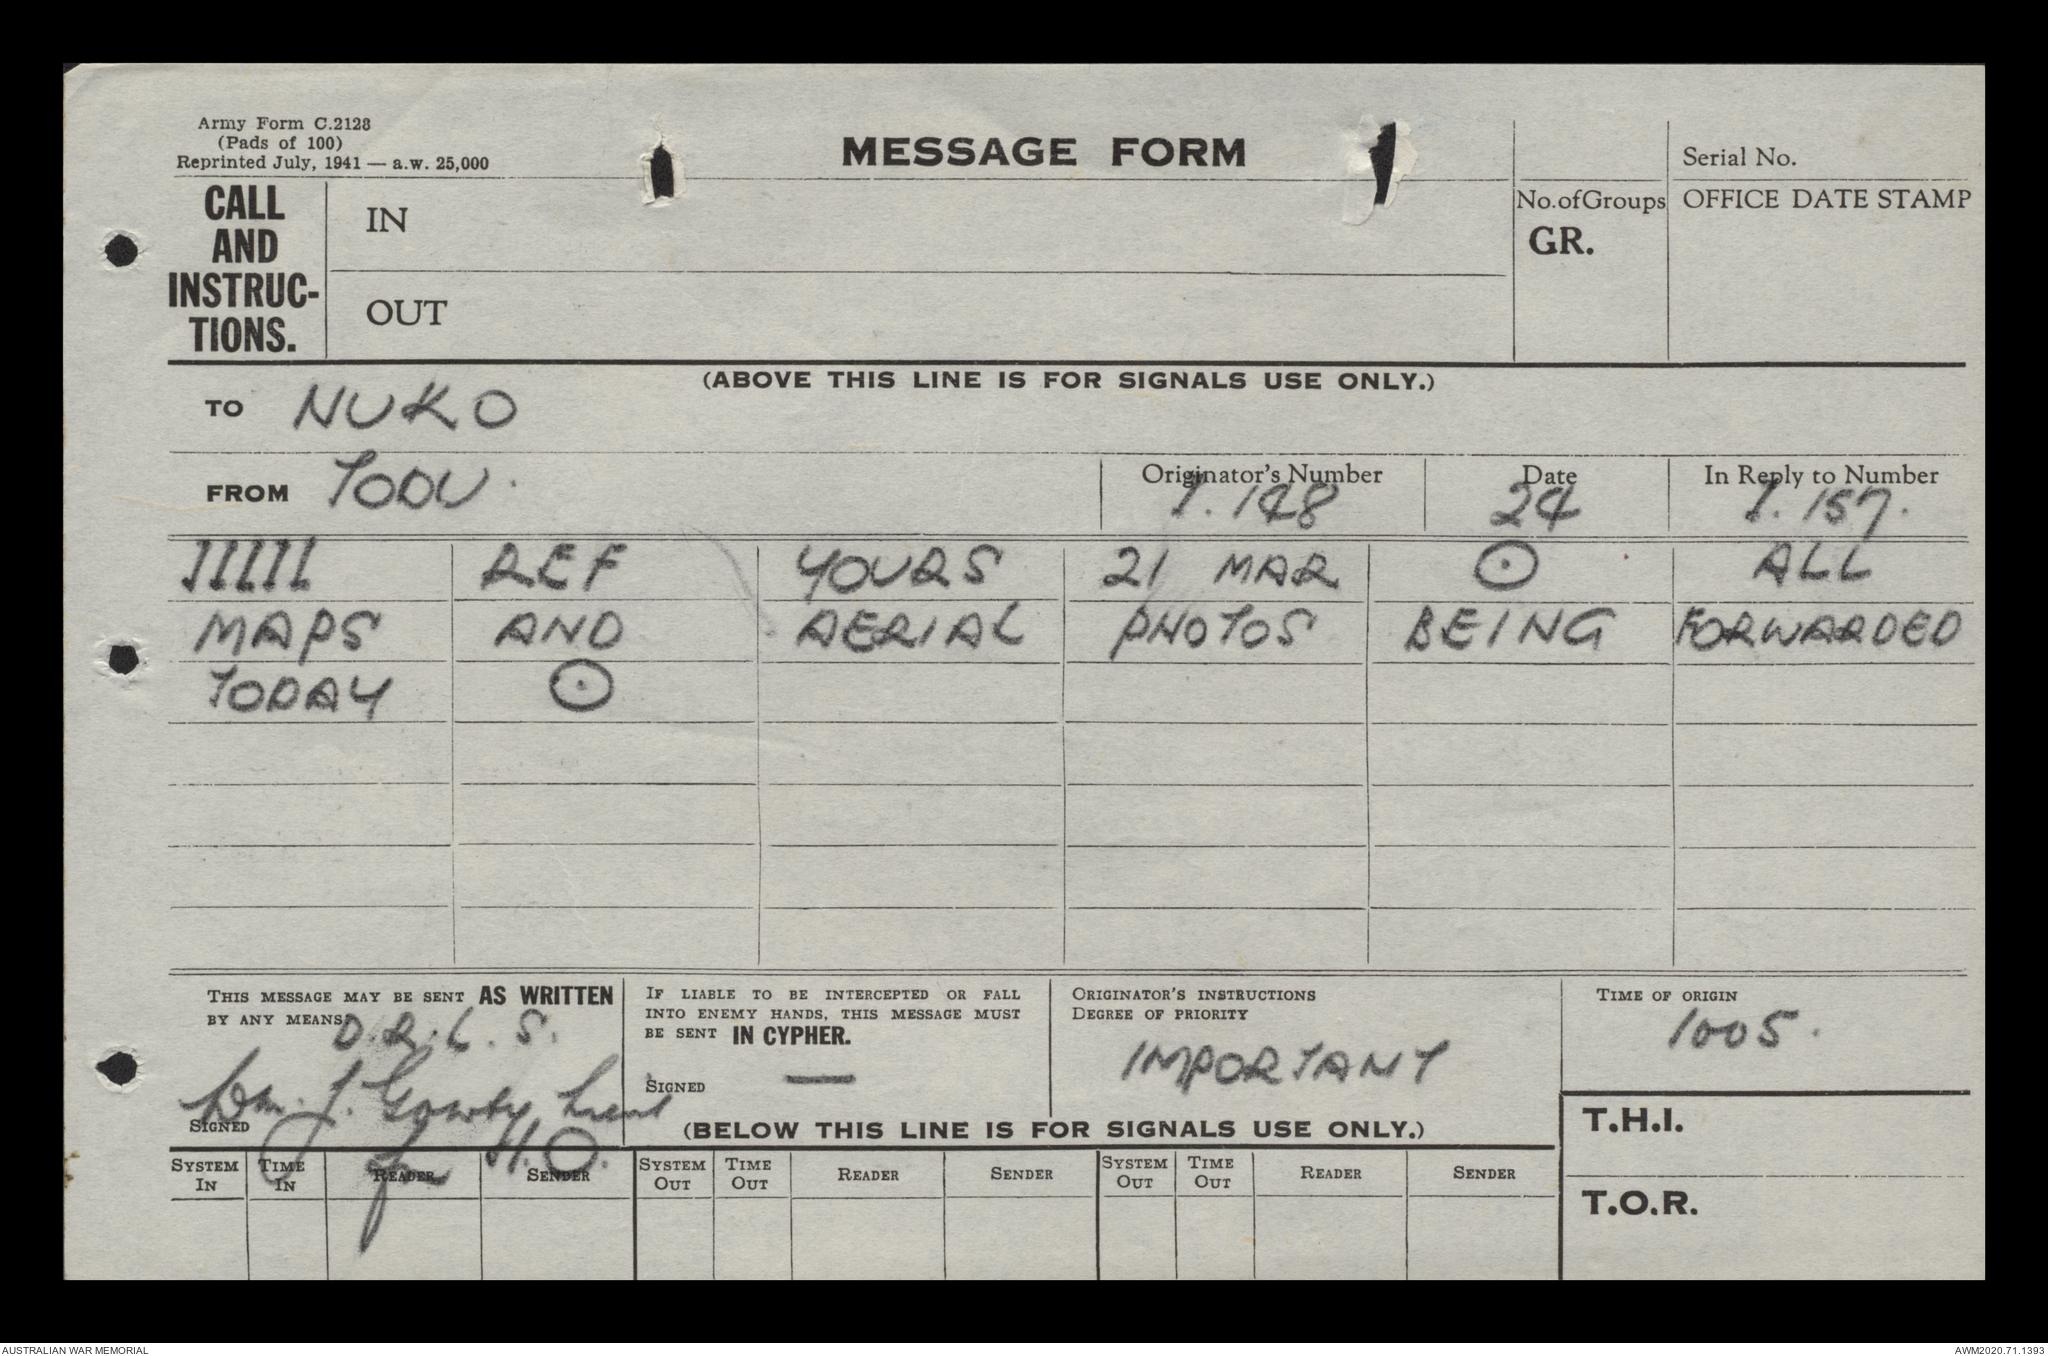 Army Form C.2128
(Pads of 100)
Reprinted July, 1941 — a.w. 25,000
MESSAGE FORM
Serial No.
CALL AND INSTRUC-TIONS.
IN
No. of Groups
GR.
OFFICE DATE STAMP
OUT
(ABOVE THIS LINE IS FOR SIGNALS USE ONLY.)
TO NUKO
FROM TODU.
Originator's Number I. 148
Date 24
In Reply to Number I. 157.
IIIII REF YOURS 21 MAR ⊙ ALL
MAPS AND AERIAL PHOTOS BEING FORWARDED
TODAY ⊙
THIS MESSAGE MAY BE SENT AS WRITTEN
BY ANY MEANS
D.R.L.S.
Wm. J. Gowby, Lieut
SIGNED
for I.O.
IF LIABLE TO BE INTERCEPTED OR FALL
INTO ENEMY HANDS, THIS MESSAGE MUST
BE SENT IN CYPHER.
SIGNED —
ORIGINATOR'S INSTRUCTIONS
DEGREE OF PRIORITY
IMPORTANT
TIME OF ORIGIN
1005.
(BELOW THIS LINE IS FOR SIGNALS USE ONLY.)
T.H.I.
SYSTEM IN TIME IN READER SENDER SYSTEM OUT TIME OUT READER SENDER SYSTEM OUT TIME OUT READER SENDER
T.O.R.
AUSTRALIAN WAR MEMORIAL
AWM2020.71.1393